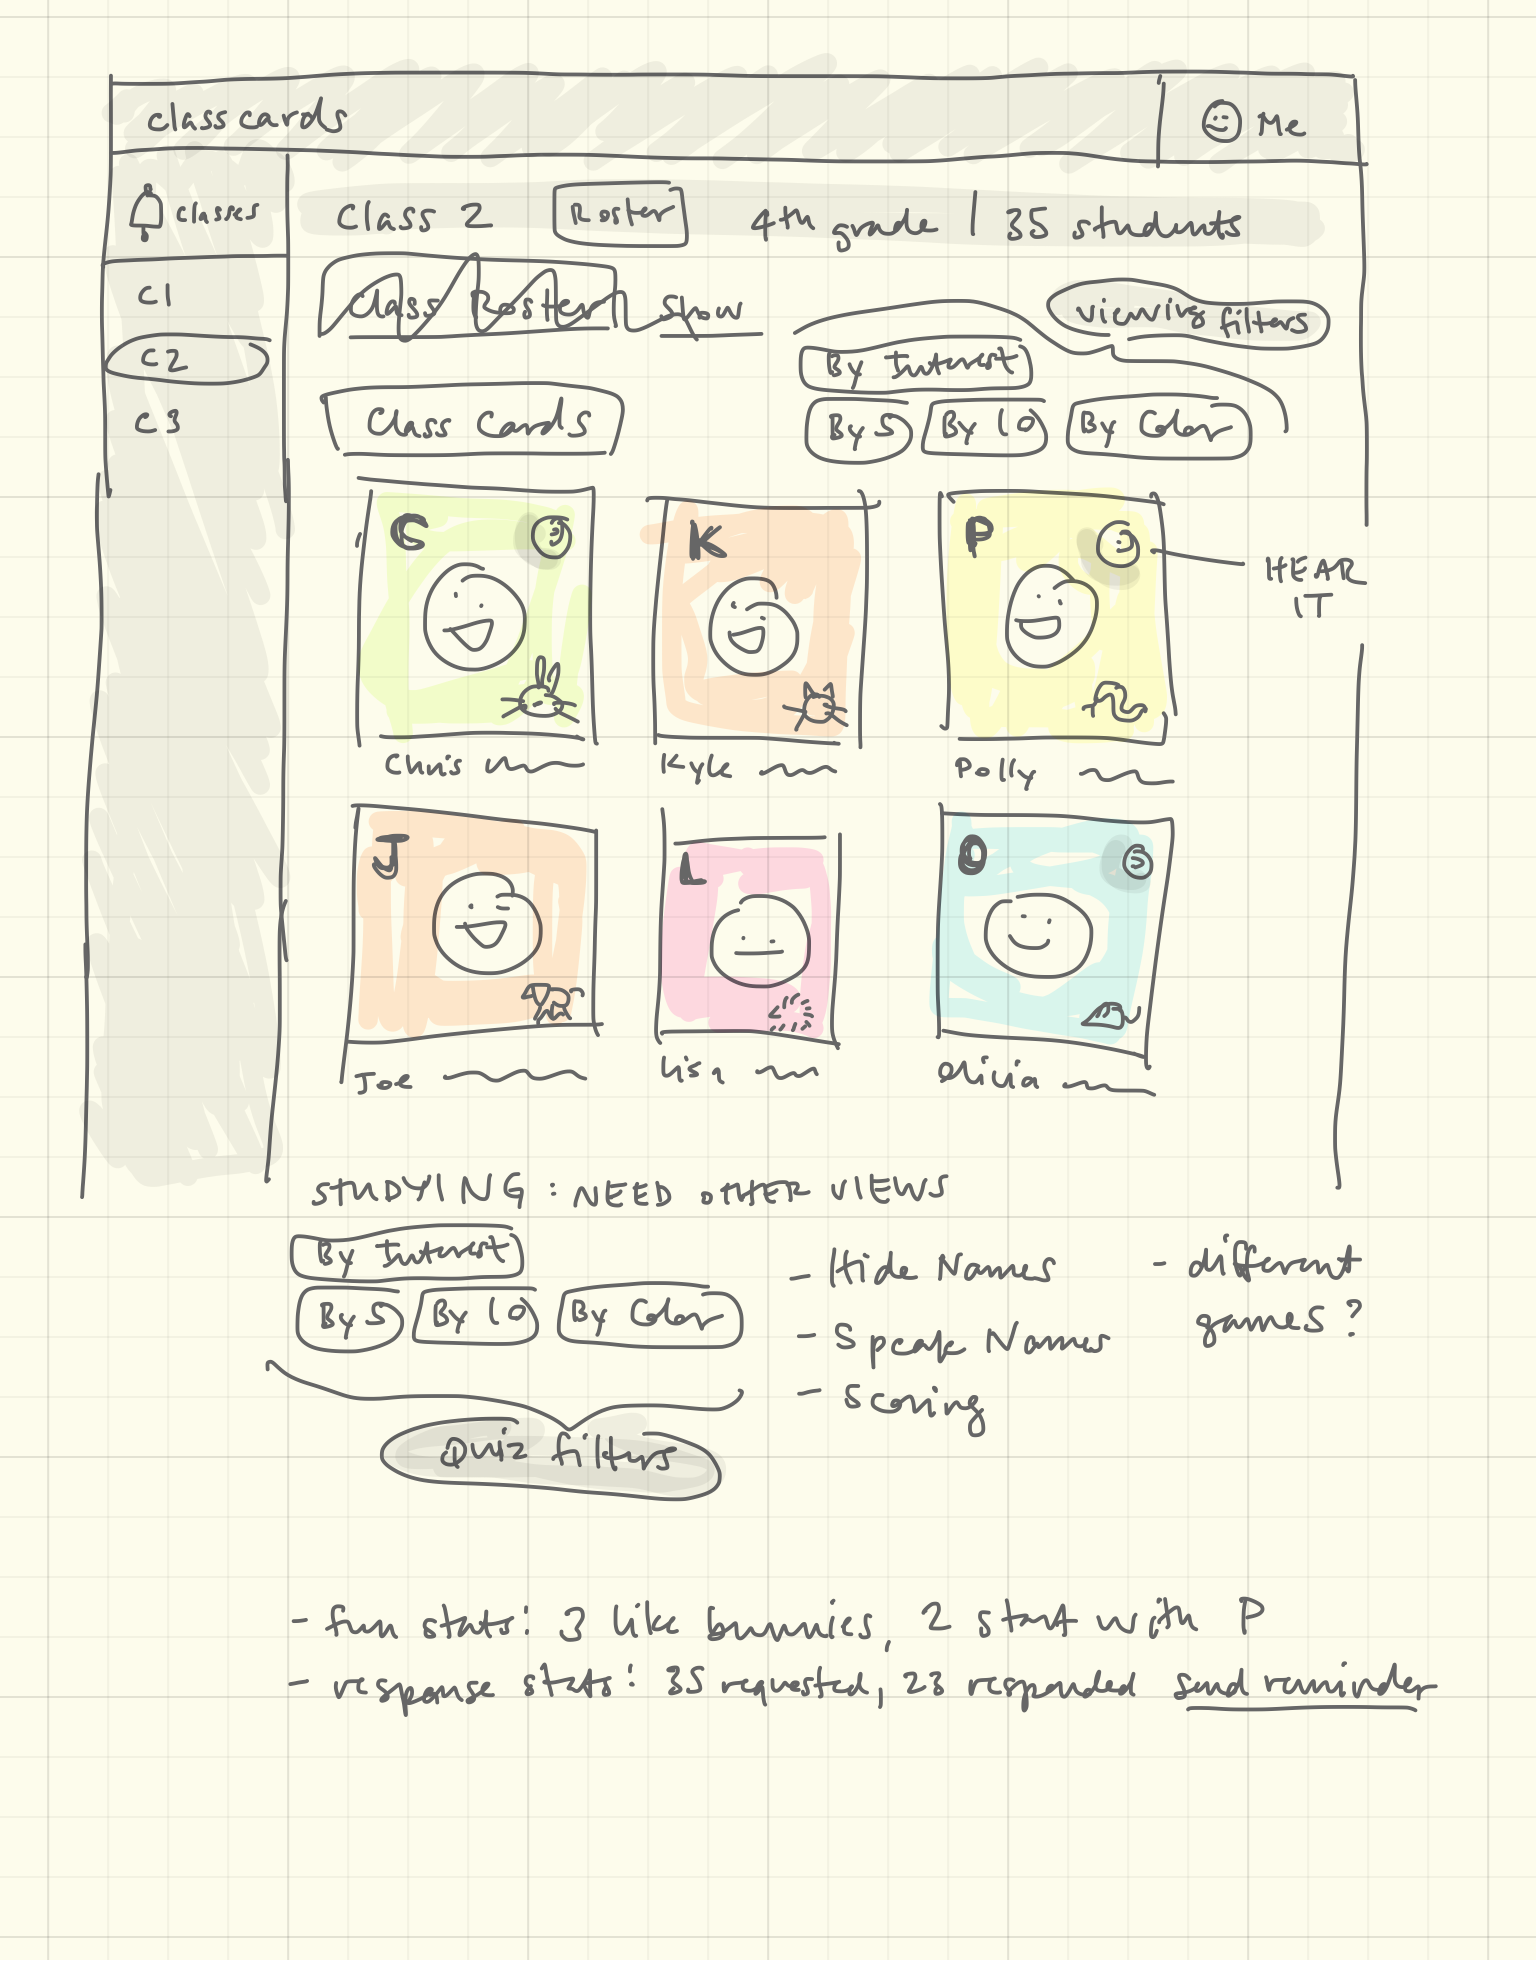 class cards
Me
classes
Class 2
Roster
4th grade | 35 students
C1
C2
C3
Class Roster
Show
viewing filters
By Interest
By 5
By 10
By Color
Class Cards
C
K
P
HEAR
IT
Chris
Kyle
Polly
J
L
O
Joe
Lisa
Olivia
STUDYING: NEED OTHER VIEWS
By Interest
By 5
By 10
By Color
Quiz filters
- Hide Names
- Speak Names
- Scoring
- different
games?
- fun stats: 3 like bunnies, 2 start with P
- response stats: 35 requested, 23 responded send reminder